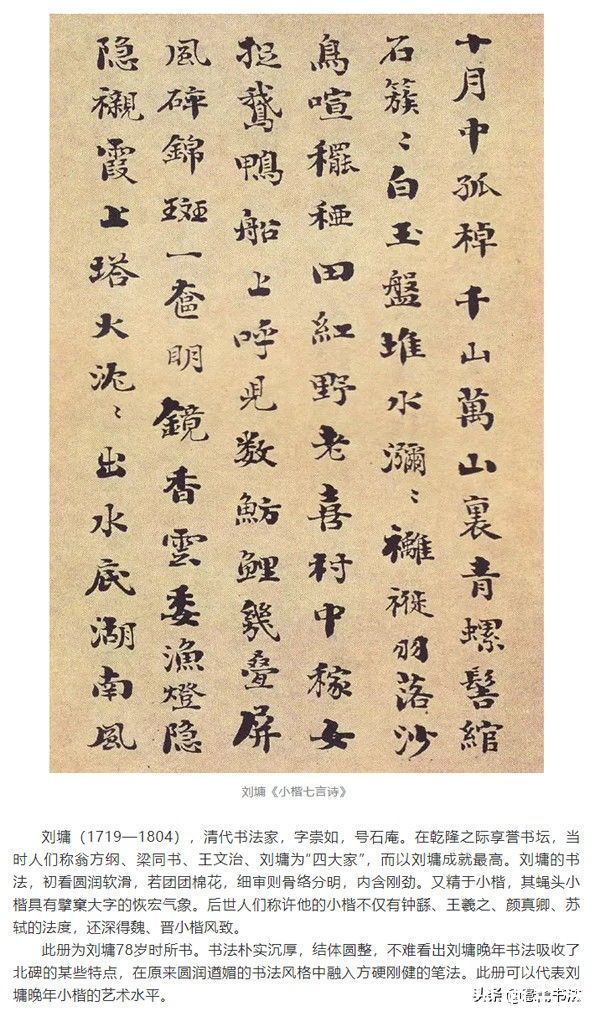 十月中孤棹千山萬山裏青螺髻綰
石簇〻白玉盤堆水瀰〻䙰褷羽落沙
鳥喧䆉稏田紅野老喜村中稼女
捉鵝鴨船上呼兒数魴鯉幾叠屏
風碎錦斑一奩明鏡香雲委漁燈隐
隐襯霞上塔火沉〻出水底湖南風
刘墉《小楷七言诗》
刘墉（1719—1804），清代书法家，字崇如，号石庵。在乾隆之际享誉书坛，当
时人们称翁方纲、梁同书、王文治、刘墉为“四大家”，而以刘墉成就最高。刘墉的书
法，初看圆润软滑，若团团棉花，细审则骨络分明，内含刚劲。又精于小楷，其蝇头小
楷具有擘窠大字的恢宏气象。后世人们称许他的小楷不仅有钟繇、王羲之、颜真卿、苏
轼的法度，还深得魏、晋小楷风致。
此册为刘墉78岁时所书。书法朴实沉厚，结体圆整，不难看出刘墉晚年书法吸收了
北碑的某些特点，在原来圆润遒媚的书法风格中融入方硬刚健的笔法。此册可以代表刘
墉晚年小楷的艺术水平。
头条 书法